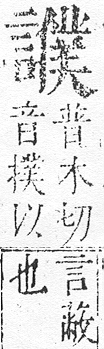 譔
普木切言蔽
音撲以也